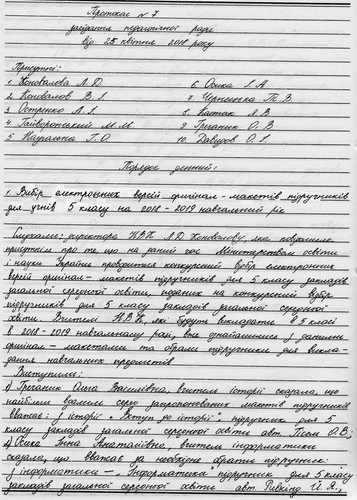 Протокол № 7
засідання педагогічної ради
від 25 квітня 2018 року
Присутні:
1. Коновалова Л.Д. 6. Осика І.А
2. Коновалов В.І. 7. Черненка Т.В
3. Остренко Л.І. 8. Ватак Л.В
4. Гайворонський М.М. 9. Гроганик О.В
5. Науранка Г.О. 10. Давидов О.І.
Порядок денний:
1. Вибір електронних версій оригінал-макетів підручників
для учнів 5 класу на 2018-2019 навчальний рік
Слухали: директора НВК Л.Д. Коновалову, яка повідомила
присутнім про те що на даний час Міністерством освіти
і науки України проводиться конкурсний відбір електронних
версій оригінал-макетів підручників для 5 класу закладів
загальної середньої освіти, поданих на конкурсний відбір
підручників для 5 класу закладів загальної середньої
освіти. Вчителі НВК, які будуть викладати в 5 класі
в 2018-2019 навчальному році, вже ознайомились з даними
оригінал-макетами та обрали підручники для викла-
дання навчальних предметів
Виступили:
1) Гроганик Ольга Василівна, вчитель історії сказала, що
найбільш вдалим серед запропонованих макетів підручників
вважає: історії "Вступ до історії", підручник для 5
класу закладів загальної середньої освіти авт. О.В;
2) Осика Інна Анатоліївна, вчитель інформатики
сказала, що вважає за необхідне обрати підручник:
з інформатики – Інформатика підручник для 5 класу
закладів загальної середньої освіти авт Ривкінд Й.Я.,